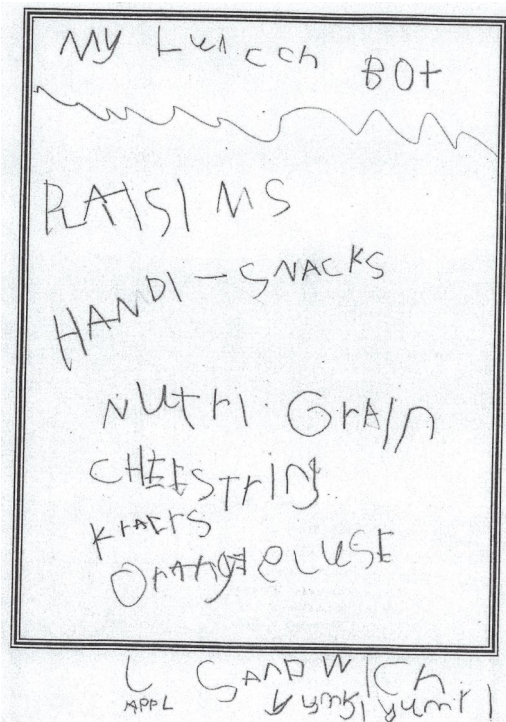 My Luncch Bot
RAISIMS
HANDI-SNACKS
NUtrI GrAIn
CHEESTrING
KrAcrs
OrANgE
L SANDWICh
APPL